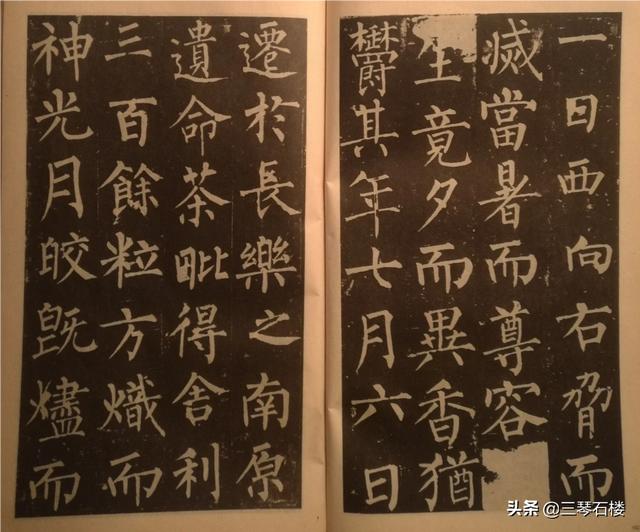 一日西向右脅而
滅當暑而尊容
生竟夕而異香猶
欝其年七月六日
遷於長樂之南原
遺命茶毗得舍利
三百餘粒方熾而
神光月皎既燼而
头条@三琴石楼